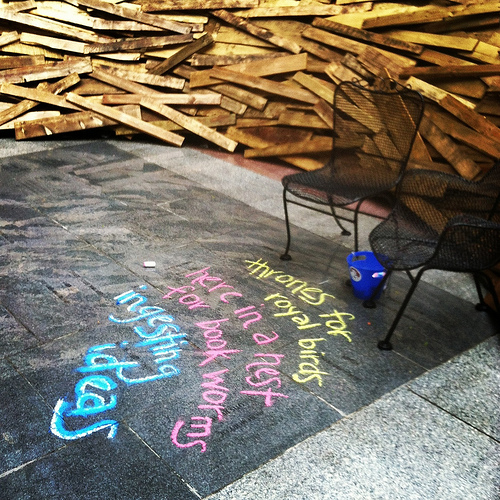 thrones for
royal birds
here in a nest
for book worms
ingesting
ideas